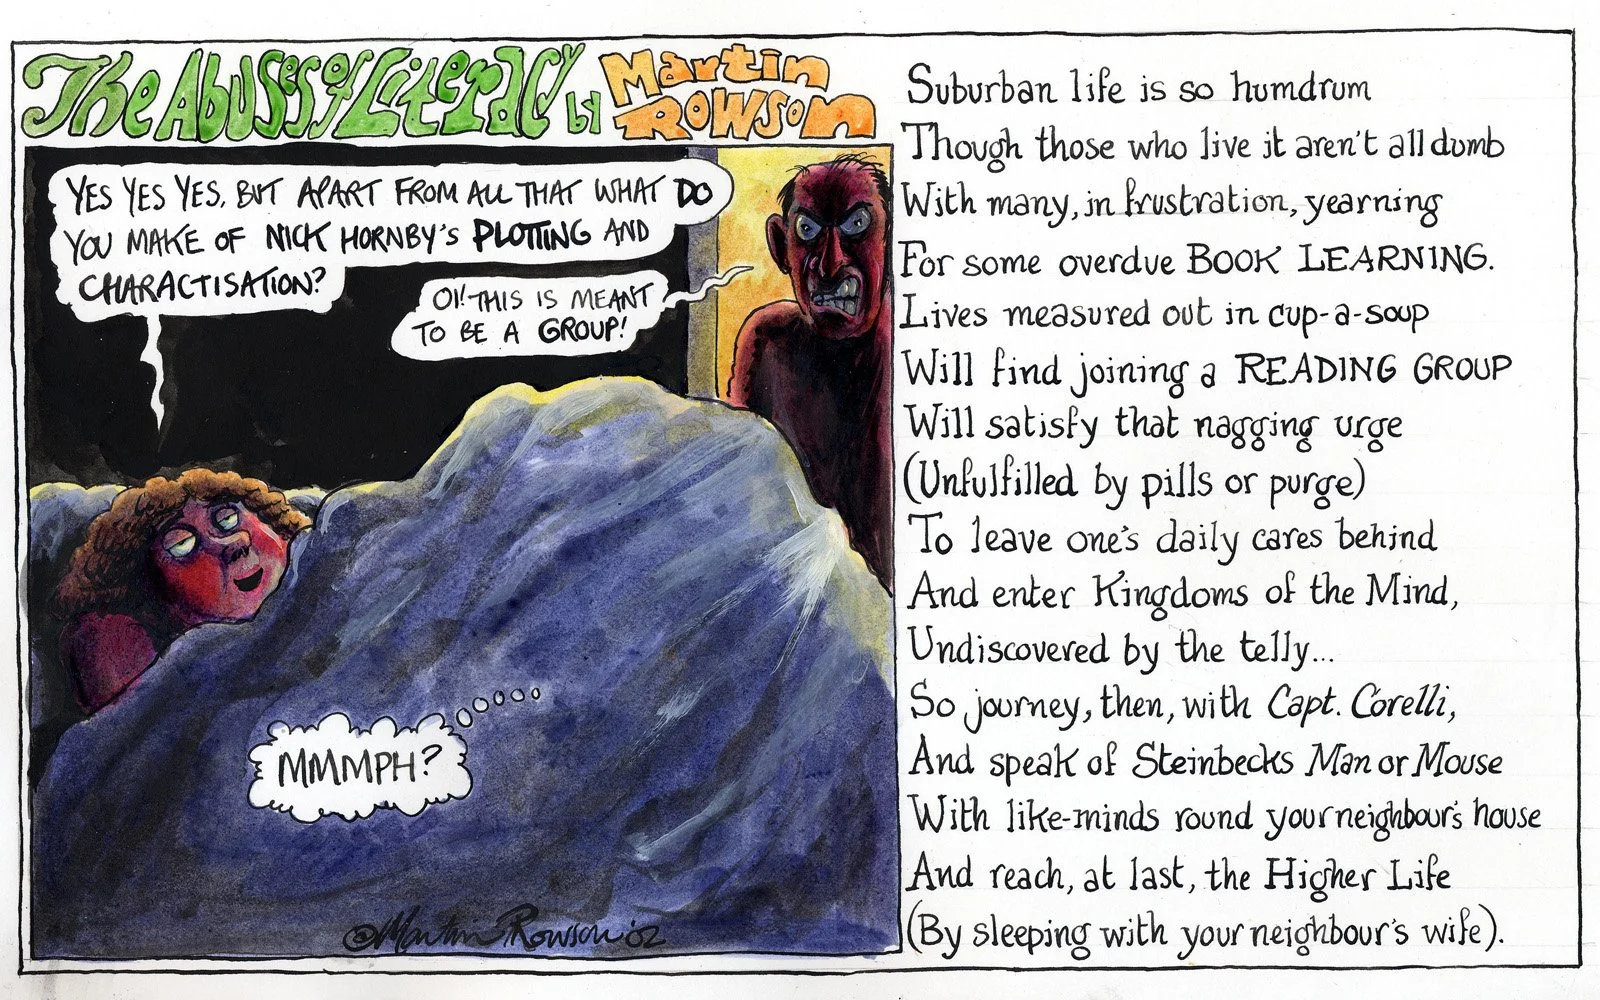 The Abuses of Literacy by Martin Rowson
YES YES YES, BUT APART FROM ALL THAT WHAT DO
YOU MAKE OF NICK HORNBY'S PLOTTING AND
CHARACTISATION?
OI! THIS IS MEANT
TO BE A GROUP!
MMMPH?
©Martin Rowson '02
Suburban life is so humdrum
Though those who live it aren't all dumb
With many, in frustration, yearning
For some overdue BOOK LEARNING.
Lives measured out in cup-a-soup
Will find joining a READING GROUP
Will satisfy that nagging urge
(Unfulfilled by pills or purge)
To leave one's daily cares behind
And enter Kingdoms of the Mind,
Undiscovered by the telly...
So journey, then, with Capt. Corelli,
And speak of Steinbecks Man or Mouse
With like-minds round your neighbour's house
And reach, at last, the Higher Life
(By sleeping with your neighbour's wife).